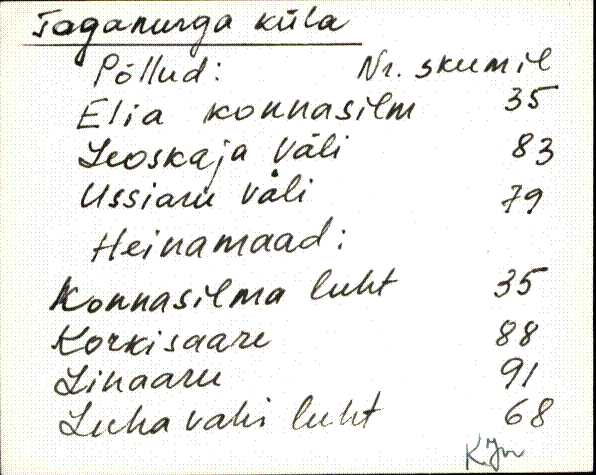 Taganurga küla
Põllud: Nr. skeemil
Elia konnasilm 35
Leoskaja väli 83
Ussiaru väli 79
Heinamaad:
Konnasilma luht 35
Korkisaare 88
Linaaru 91
Luhavahi luht 68